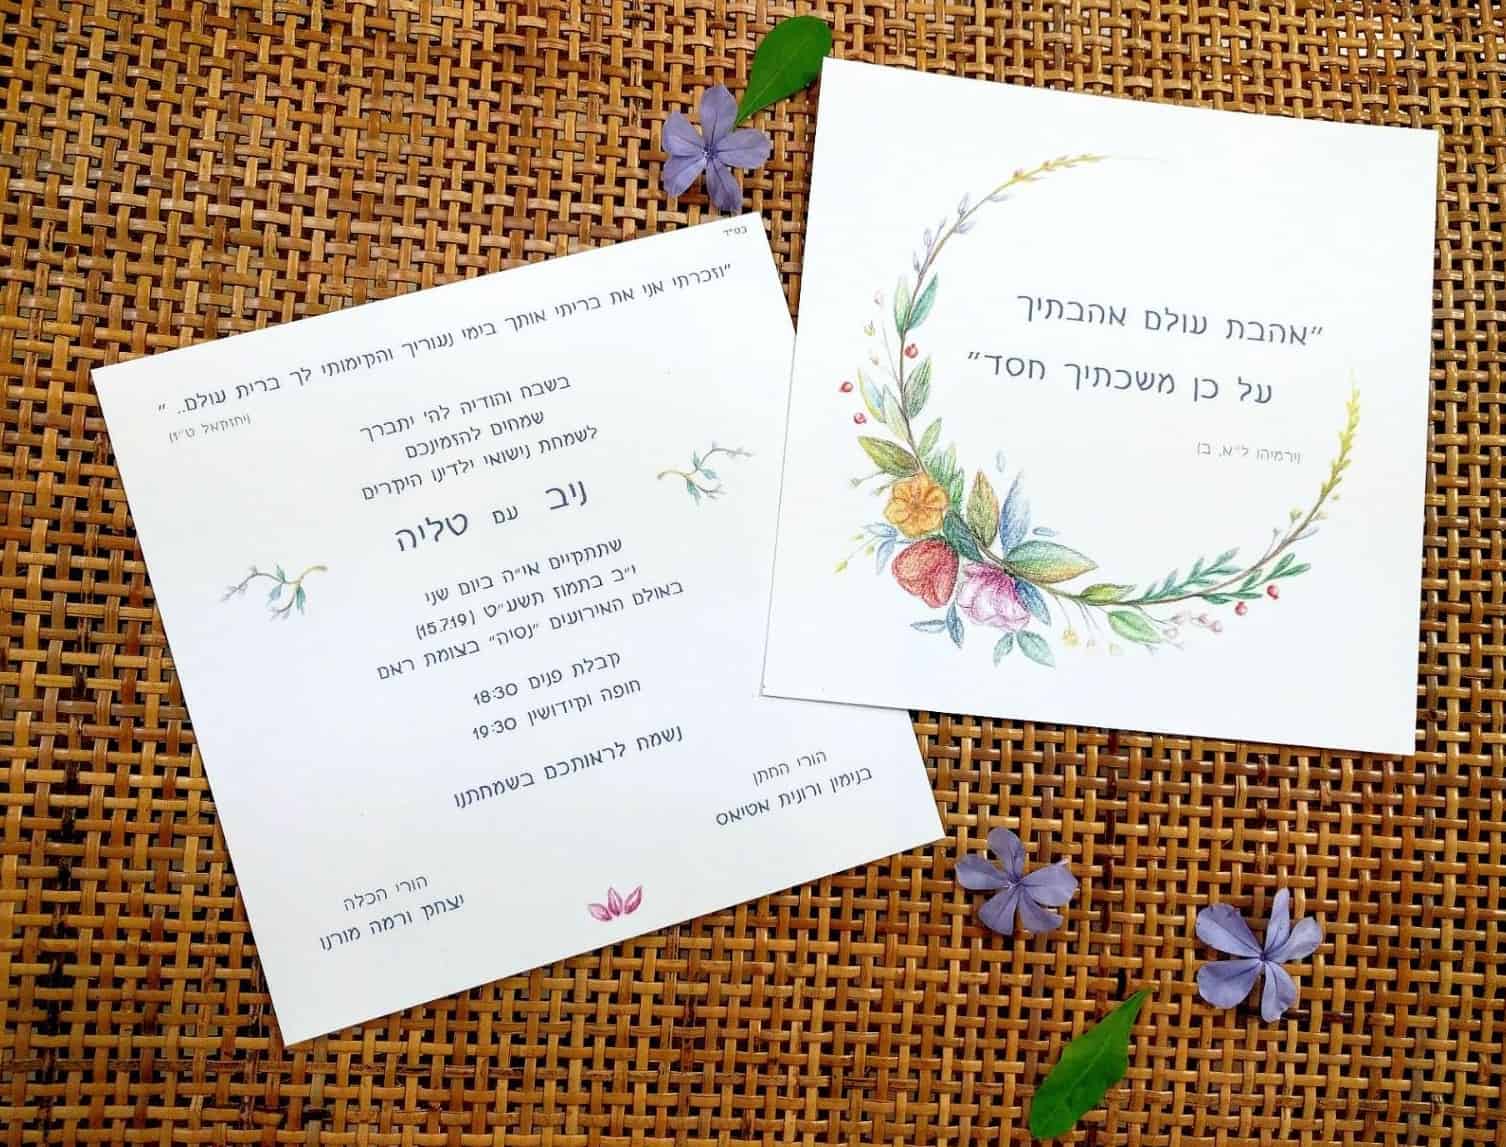 בס״ד
״וזכרתי אני את בריתי אותך בימי נעוריך והקימותי לך ברית עולם.. ״
(יחזקאל ט״ז)
בשבח והודיה לה׳ יתברך
שמחים להזמינכם
לשמחת נישואי ילדינו היקרים
ניב עם טליה
שתתקיים אי״ה ביום שני
י״ב בתמוז תשע״ט (15.7.19)
באולם האירועים ״נסיה״ בצומת ראם
קבלת פנים 18:30
חופה וקידושין 19:30
נשמח לראותכם בשמחתנו
הורי החתן
בנימין ורונית אטיאס
הורי הכלה
יצחק ורמה מורנו
״אהבת עולם אהבתיך
על כן משכתיך חסד״
(ירמיהו ל״א, ב)